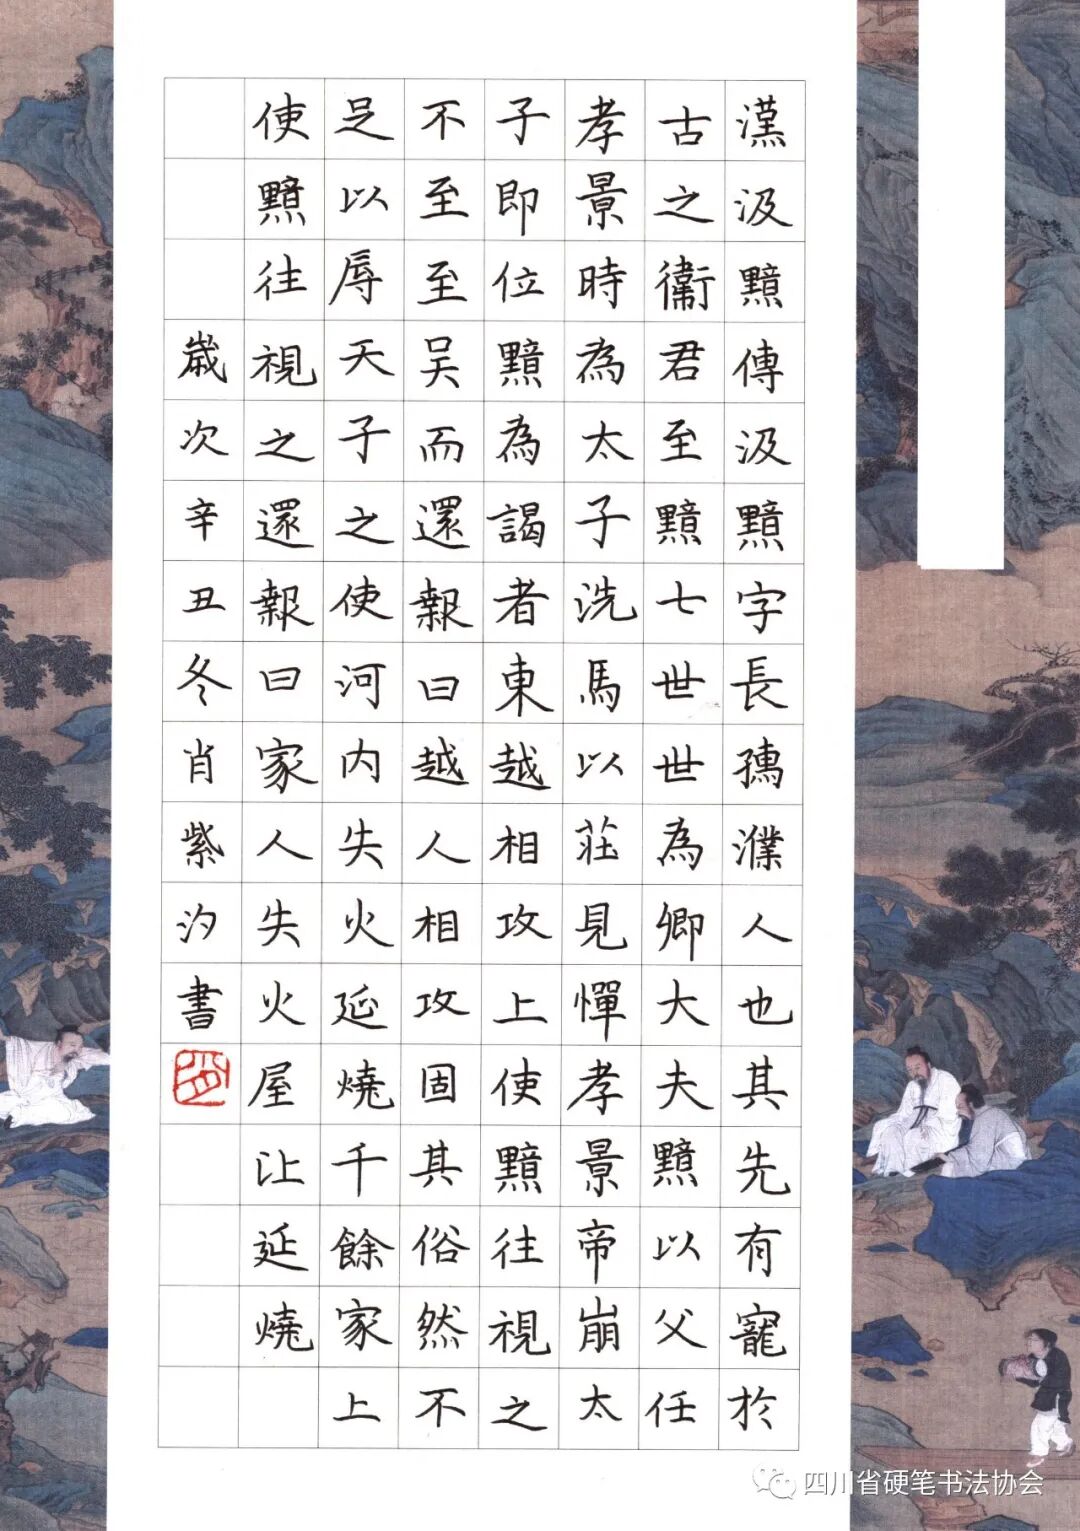 漢汲黯傳汲黯字長孺濮人也其先有寵於
古之衛君至黯七世世為卿大夫黯以父任
孝景時為太子洗馬以莊見憚孝景帝崩太
子即位黯為謁者東越相攻上使黯往視之
不至至吳而還報曰越人相攻固其俗然不
足以辱天子之使河内失火延燒千餘家上
使黯往視之還報曰家人失火屋比延燒
歲次辛丑冬肖紫汐書
四川省硬笔书法协会